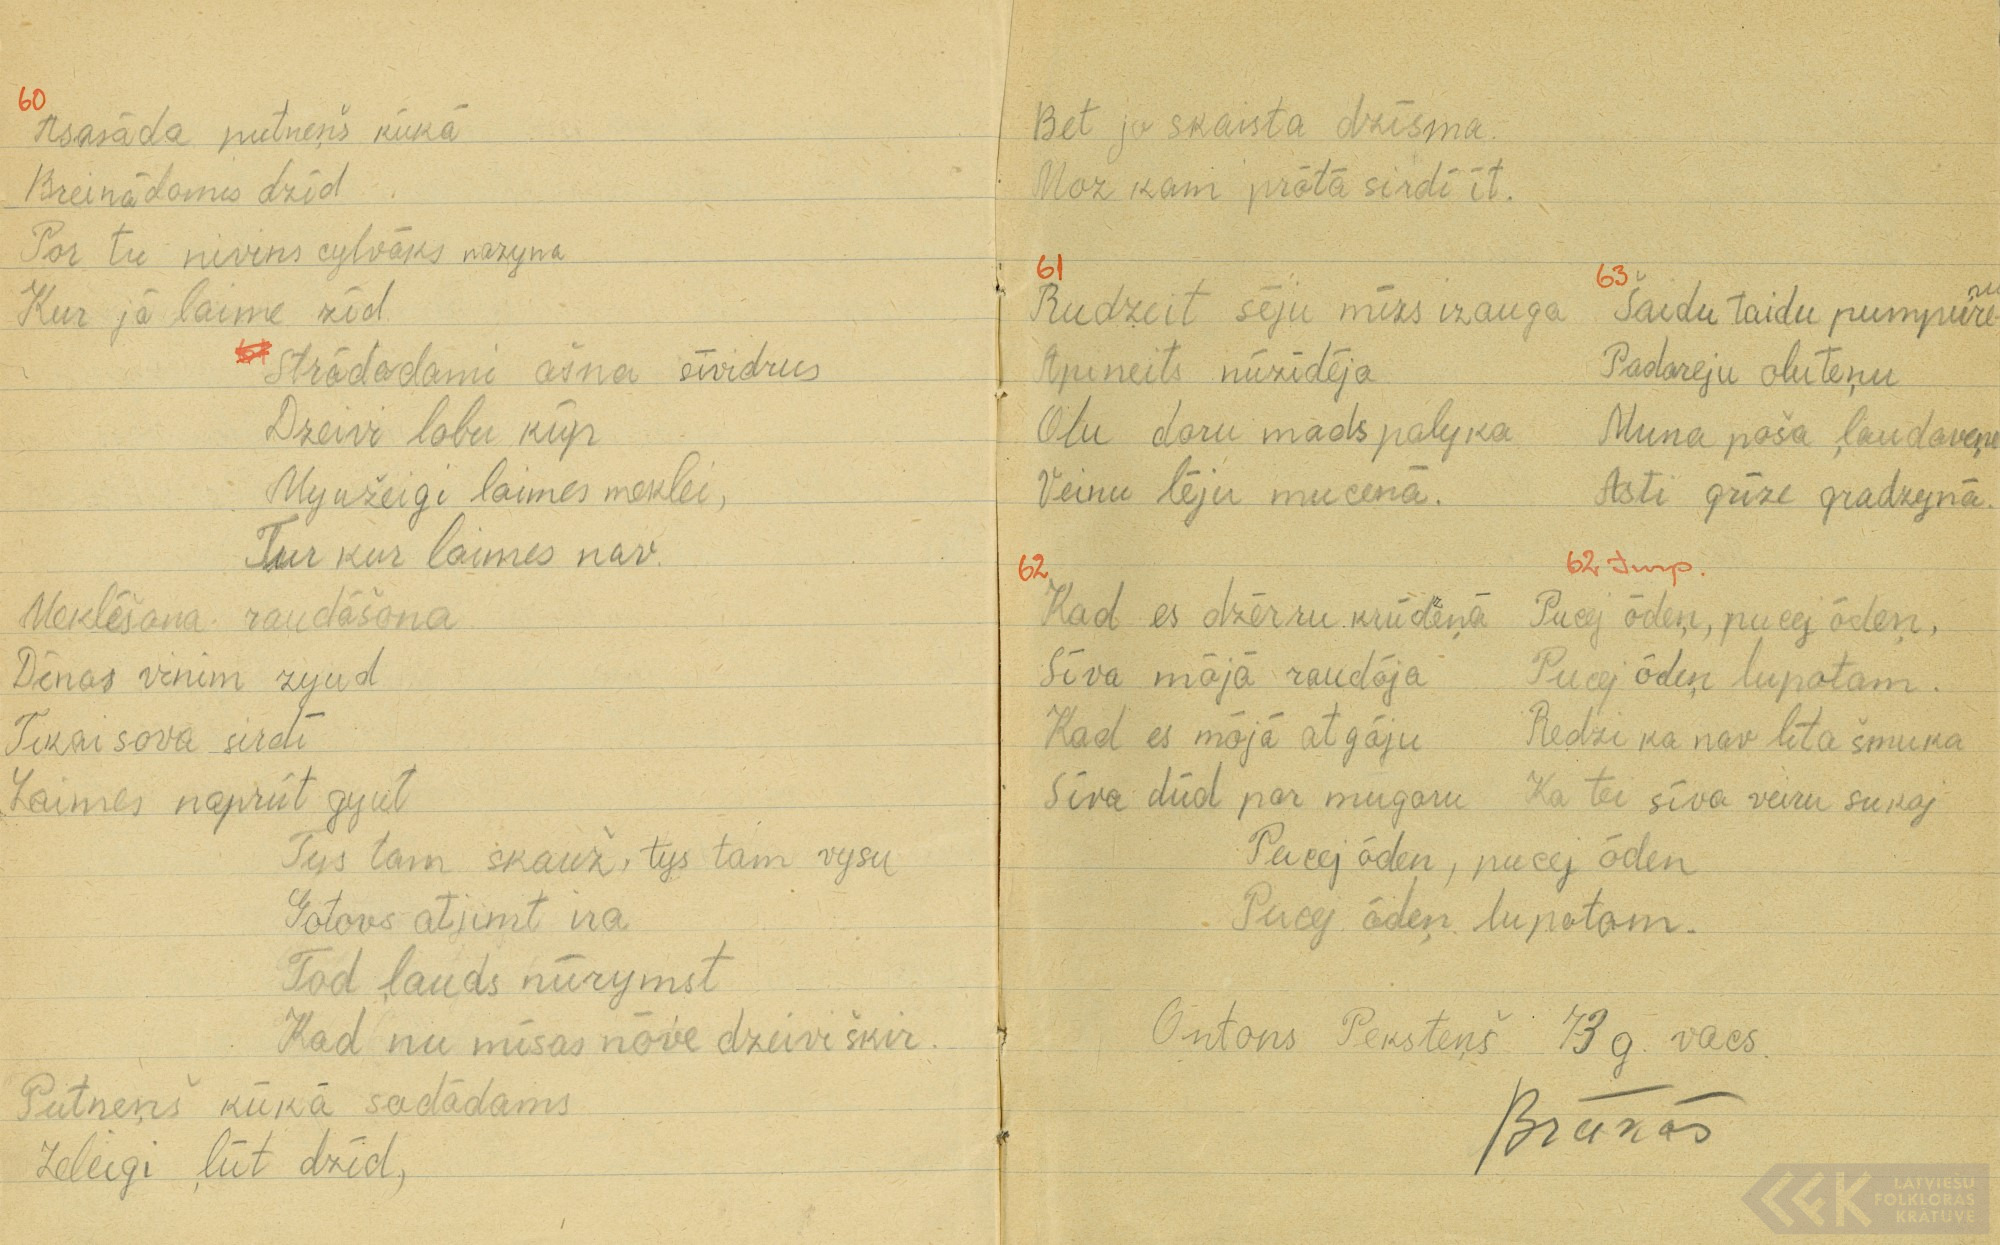 60
Asarāda putneņš kūkā
Breinādamis dzīd
Por tu nivins cylvāks nazyna
Kur jā laime zīd
Strādadami ašna sīvidrus
Dzeivi lobu kūp
Myužeigi laimes meklei,
Tur kur laimes nav.
Meklēšana raudāšona
Dīnas vinim zyud
Tikai sova sirdī
Laimes naprūt gyut
Tys tam skauž, tys tam vysu
Gotovs atjimt ira
Tod ļauds nūrymst
Kad nu mīsas nōve dzeivi škir.
Putneņš kūkā sadādams
Zeleigi ļūt dzīd,
Bet jo skaista dzīsma.
Moz kam prōtā sirdī īt.
61
Rudzeit sēju mīzs izauga
Apineits nūzīdēja
Olu doru mads palyka
Veinu lēju mucenā.
62
Kad es dzērru krūdzeņā
Sīva mōjā raudōja
Kad es mōjā atgōju
Sīva dūd par mugoru
63
Šaidu taidu pumpūreņu
Padareju oluteņu
Muna poša ļaudaveņa
Asti grīze gradzynā.
62 Turp.
Pucej ōdeņ, pucej ōdeņ,
Pucej ōdeņ lupotam.
Redzi ka nav līta šmuka
Ka tei sīva veiru sukoj
Pucej ōdeņ, pucej ōdeņ
Pucej ōdeņ lupotam.
Ontons Peksteņš 73 g. vacs.
Brūkōs
LATVIEŠU
FOLKLORAS
KRĀTUVE